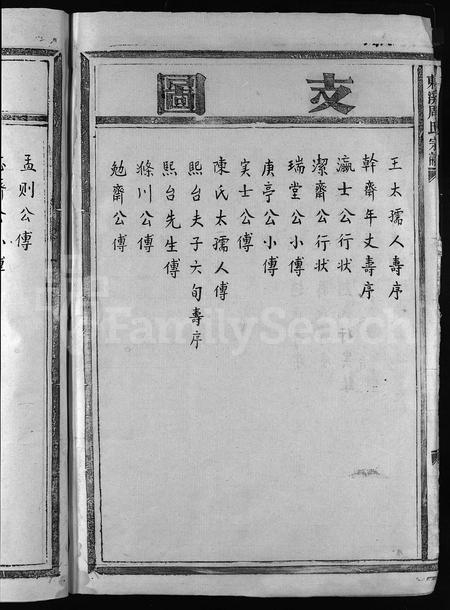 支圖
王太孺人壽序
幹齋年丈壽序
瀛士公行狀
潔齋公行狀
瑞堂公小傳
庚亭公小傳
寅士公傳
陳氏太孺人傳
熙台夫子六旬壽序
熙台先生傳
滌川公傳
勉齋公傳
孟則公傳
FamilySearch